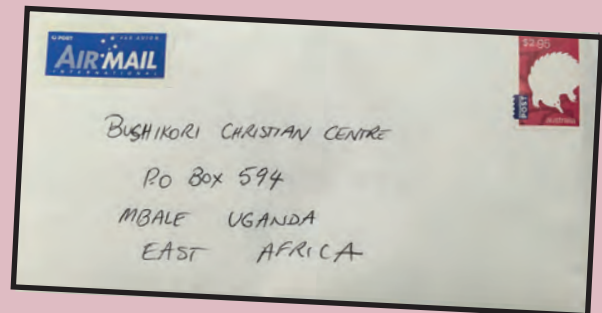 POST PAR AVION
AIR MAIL
INTERNATIONAL
$2.95
POST
australia
BUSHIKORI CHRISTIAN CENTRE
P.O BOX 594
MBALE UGANDA
EAST AFRICA